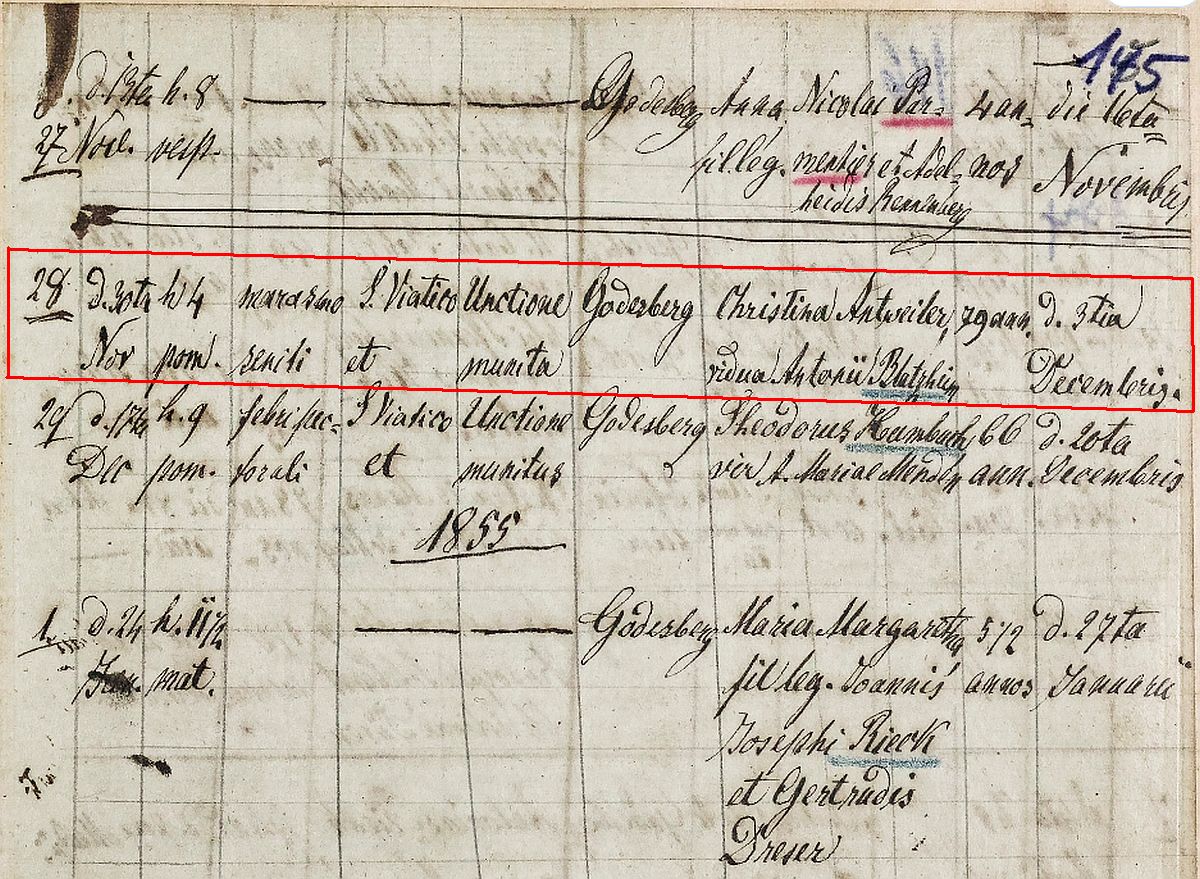 175
d. 13ta h. 8 Godesberg Anna Nicolai Par= 4 an= die 16ta
27 Nov. vesp. fil. leg. mentier et Adel= nos Novembris
heidis Rennenberg
28 d. 30ta h 4 marasmo S. Viatico Unctione Godesberg Christina Antweiler, 79 ann. d. 3tia
Nov pom. senili et munita vidua Antonii Blatzheim Decembris.
29 d. 17ta h. 9 febri pec= S. Viatico Unctione Godesberg Theodorus Hambach, 66 d. 20ta
Dec pom. torali et munitus vir A. Mariae Menden ann. Decembris
1855
1. d. 24 h. 11 1/2 Godesberg Maria Margaretha 5 1/2 d. 27ta
Jan. mat. fil leg. Joannis annos Januarii
Josephi Rieck
et Gertrudis
Dreser